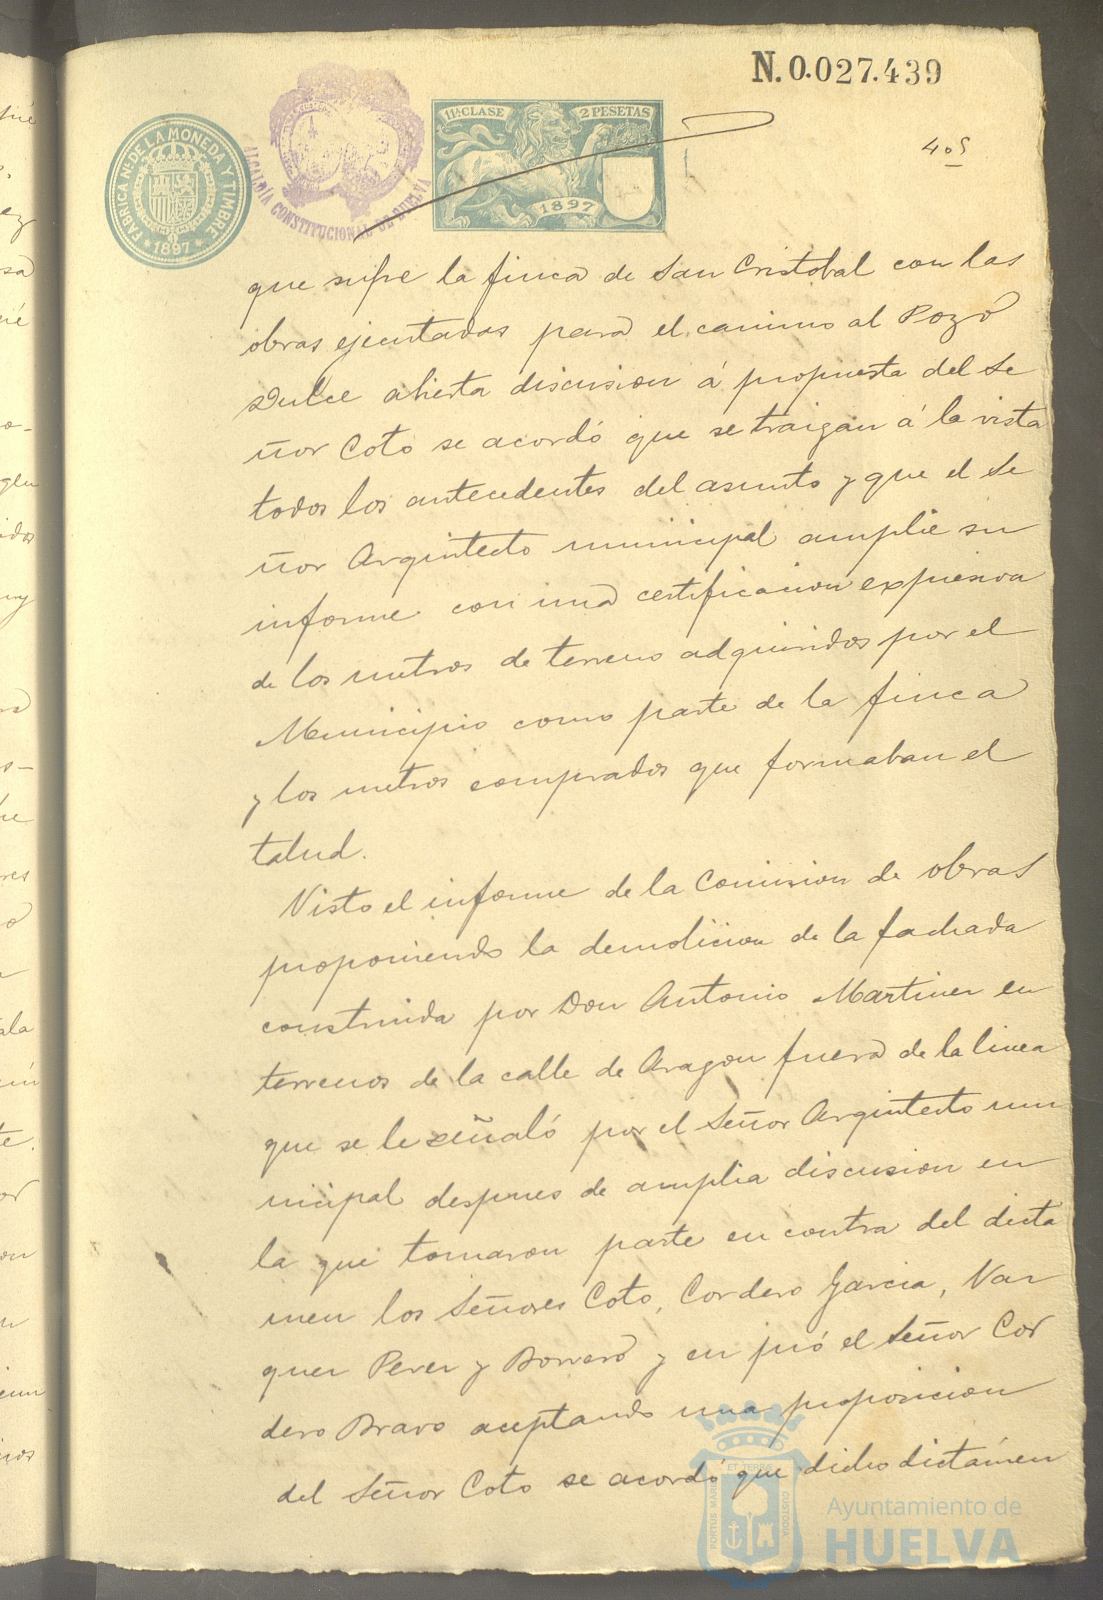 N. 0.027.439
FABRICA Nal DE LA MONEDA Y TIMBRE
* 1897 *
ALCALDÍA CONSTITUCIONAL DE HUELVA
11ª CLASE 2 PESETAS
1897
que sufre la finca de San Cristobal con las
obras ejecutadas para el camino al Pozo
Dulce abierta discusion á propuesta del Se
ñor Coto se acordó que se traigan á la vista
todos los antecedentes del asunto y que el Se
ñor Arquitecto municipal amplie su
informe con una certificacion expresiva
de los metros de terreno adquiridos por el
Municipio como parte de la finca
y los metros comprados que formaban el
talud.
Visto el informe de la Comision de obras
proponiendo la demolicion de la fachada
construida por Don Antonio Martinez en
terrenos de la calle de Aragon fuera de la linea
que se le señaló por el Señor Arquitecto mu
nicipal despues de amplia discusion en
la que tomaron parte en contra del dicta
men los Señores Coto, Cordero Garcia, Vaz
quez Perez y Borrero y en pró el Señor Cor
dero Bravo aceptando una proposicion
del Señor Coto se acordó que dicho dictámen
PORTUS MARIS ET TERRAE CUSTODIA
Ayuntamiento de
HUELVA